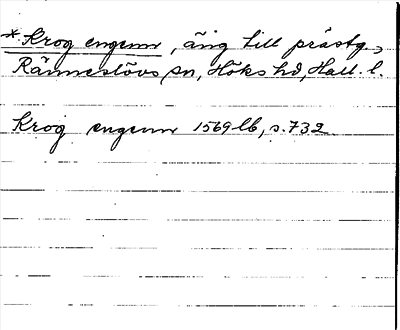 * Krog engenn, äng till prästg.,
Ränneslövs sn, Höks hd, Hall. l.
Krog engenn 1569 lb, s. 732